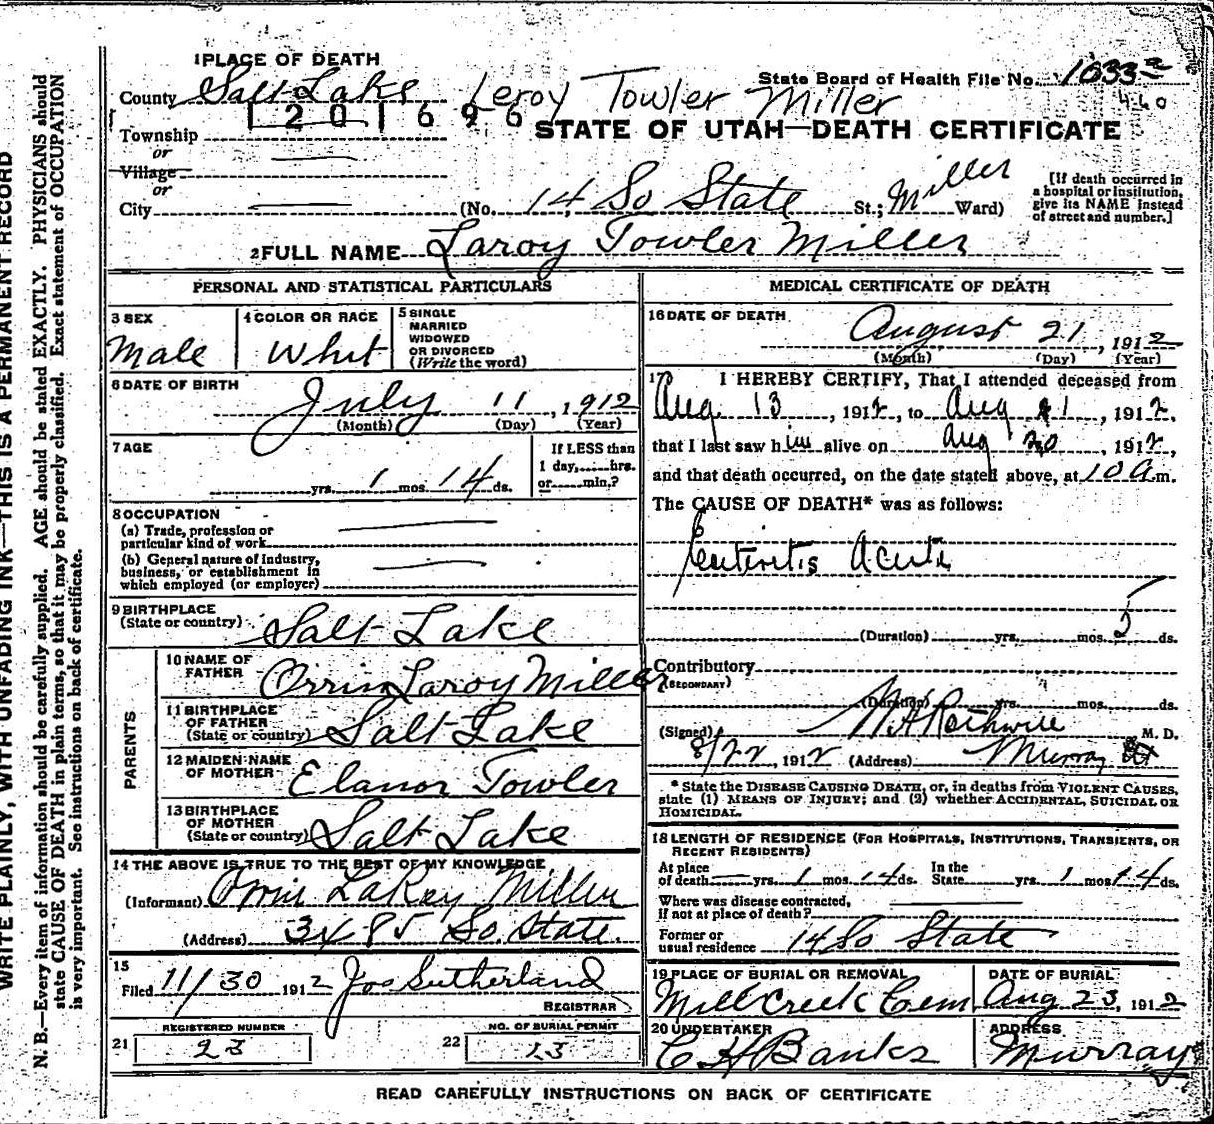 1 PLACE OF DEATH
State Board of Health File No. 1033
460
County Salt Lake Leroy Towler Miller
1201696
STATE OF UTAH—DEATH CERTIFICATE
Township
or
Village
or
City (No. 14 So State St.; Miller Ward)
[If death occurred in a hospital or institution, give its NAME instead of street and number.]
2 FULL NAME Laroy Towler Miller
PERSONAL AND STATISTICAL PARTICULARS
3 SEX
Male
4 COLOR OR RACE
Whit
5 SINGLE
MARRIED
WIDOWED
OR DIVORCED
(Write the word)
6 DATE OF BIRTH
July 11, 1912
(Month) (Day) (Year)
7 AGE
yrs. 1 mos. 14 ds.
If LESS than
1 day, hrs.
or min.?
8 OCCUPATION
(a) Trade, profession or
particular kind of work
(b) General nature of industry,
business, or establishment in
which employed (or employer)
9 BIRTHPLACE
(State or country) Salt Lake
PARENTS
10 NAME OF
FATHER Orrin Laroy Miller
11 BIRTHPLACE
OF FATHER
(State or country) Salt Lake
12 MAIDEN NAME
OF MOTHER Elanor Towler
13 BIRTHPLACE
OF MOTHER
(State or country) Salt Lake
14 THE ABOVE IS TRUE TO THE BEST OF MY KNOWLEDGE
(Informant) Orrin LaRoy Miller
(Address) 3485 So. State.
15
Filed 11/30 1912 Jos Sutherland
REGISTRAR
REGISTERED NUMBER
21 23
NO. OF BURIAL PERMIT
22 23
MEDICAL CERTIFICATE OF DEATH
16 DATE OF DEATH
August 21, 1912
(Month) (Day) (Year)
17 I HEREBY CERTIFY, That I attended deceased from
Aug 13, 1912, to Aug 21, 1912,
that I last saw him alive on Aug 20, 1912,
and that death occurred, on the date stated above, at 10 a.m.
The CAUSE OF DEATH* was as follows:
Enteritis Acute
(Duration) yrs. mos. ds.
Contributory
(SECONDARY)
(Duration) yrs. mos. ds.
(Signed) M. D.
8/22, 1912 (Address) Murray
*State the DISEASE CAUSING DEATH, or, in deaths from VIOLENT CAUSES,
state (1) MEANS OF INJURY; and (2) whether ACCIDENTAL, SUICIDAL OR
HOMICIDAL.
18 LENGTH OF RESIDENCE (FOR HOSPITALS, INSTITUTIONS, TRANSIENTS, OR
RECENT RESIDENTS)
At place In the
of death yrs. 1 mos. 14 ds. State yrs. 1 mos. 14 ds.
Where was disease contracted,
if not at place of death?
Former or
usual residence 14 So State
19 PLACE OF BURIAL OR REMOVAL
Mill Creek Cem
DATE OF BURIAL
Aug 23, 1912
20 UNDERTAKER
C H Banks
ADDRESS
Murray
READ CAREFULLY INSTRUCTIONS ON BACK OF CERTIFICATE
WRITE PLAINLY, WITH UNFADING INK—THIS IS A PERMANENT RECORD
N. B.—Every item of information should be carefully supplied. AGE should be stated EXACTLY. PHYSICIANS should
state CAUSE OF DEATH in plain terms, so that it may be properly classified. Exact statement of OCCUPATION
is very important. See instructions on back of certificate.